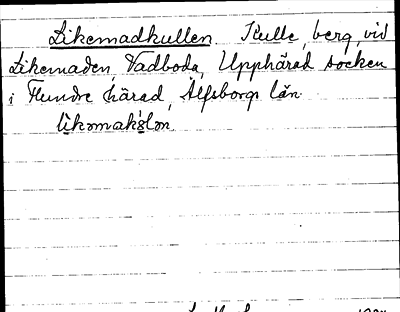 Likemadkullen Kulle, berg, vid
Likemaden, Vadboda, Upphärad socken
i Flundre härad, Älfsborgs län.